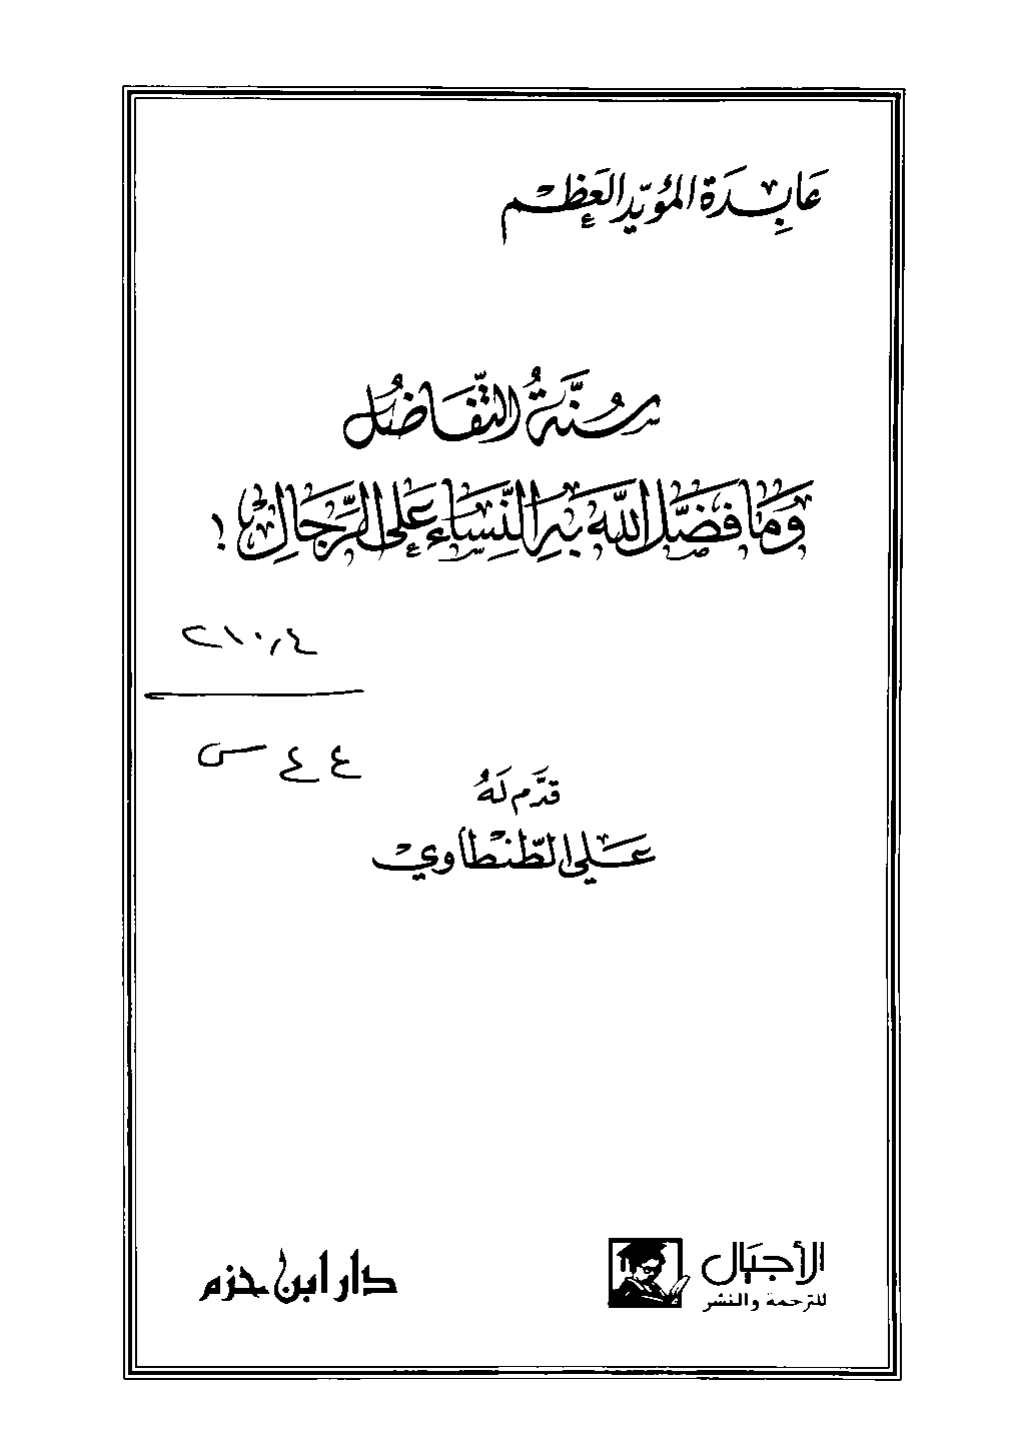 عَابِدَة المؤيّد العَظم
سُنَّةُ التَّفَاضُل
وَمَا فَضَّلَ اللهُ بِهِ النِّسَاءَ عَلَى الرِّجَالِ !
٢١٠,٤
ع ع س
قدَّم لَهُ
عَلي الطّنطاوي
الأجيال
للترجمة والنشر
دار ابن حزم